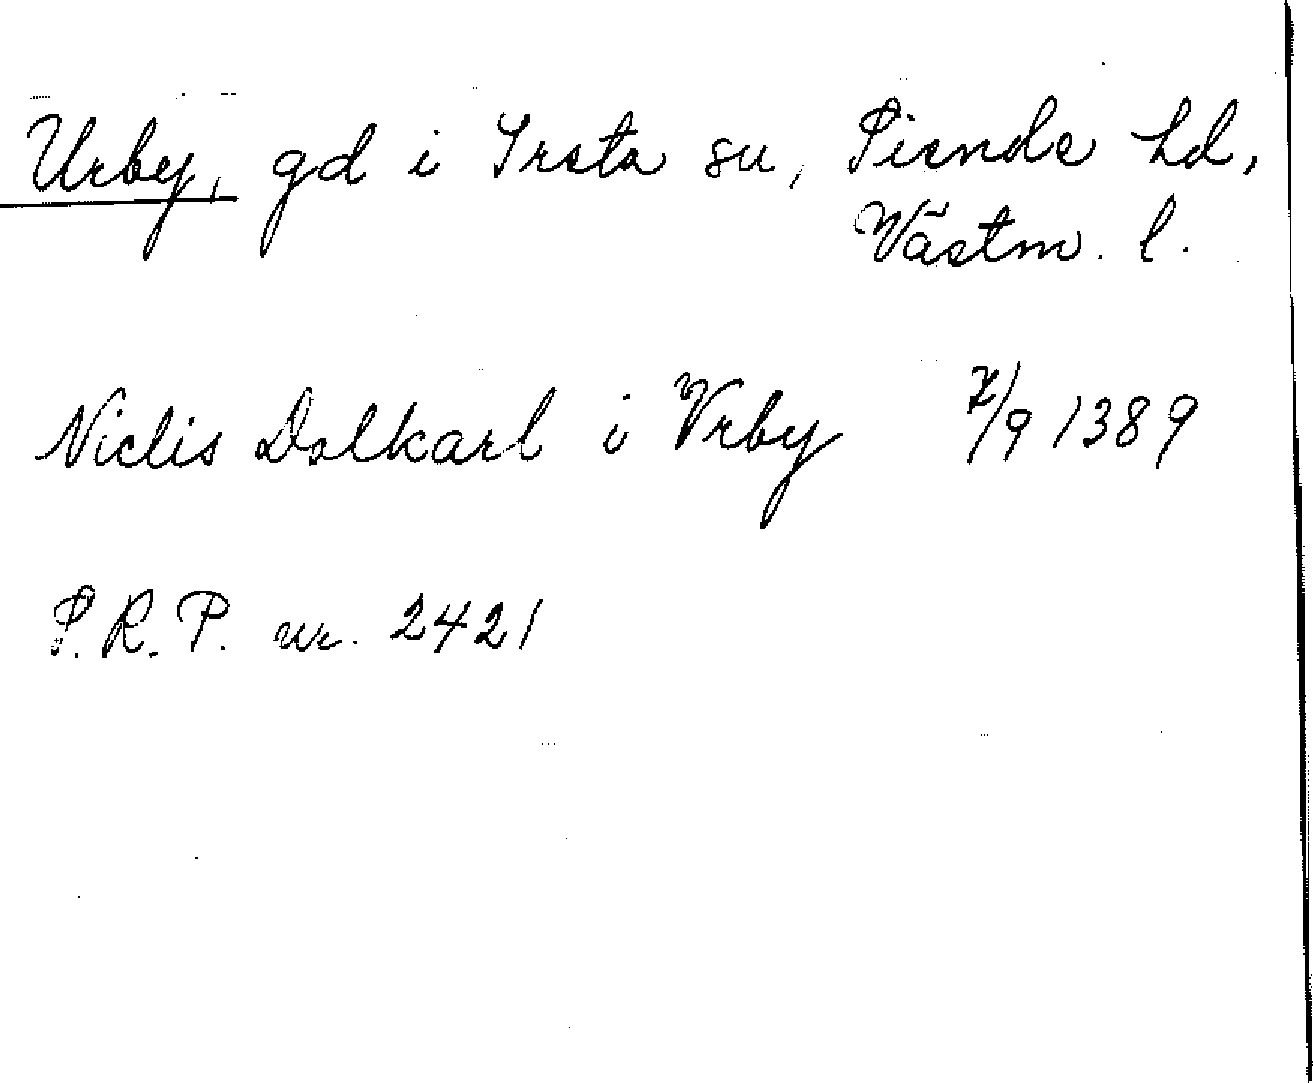 Urby, gd i Irsta sn, Siende hd,
Västm. l.
Niclis Dalkarl i Vrby 7/9 1389
S.R.P. nr. 2421